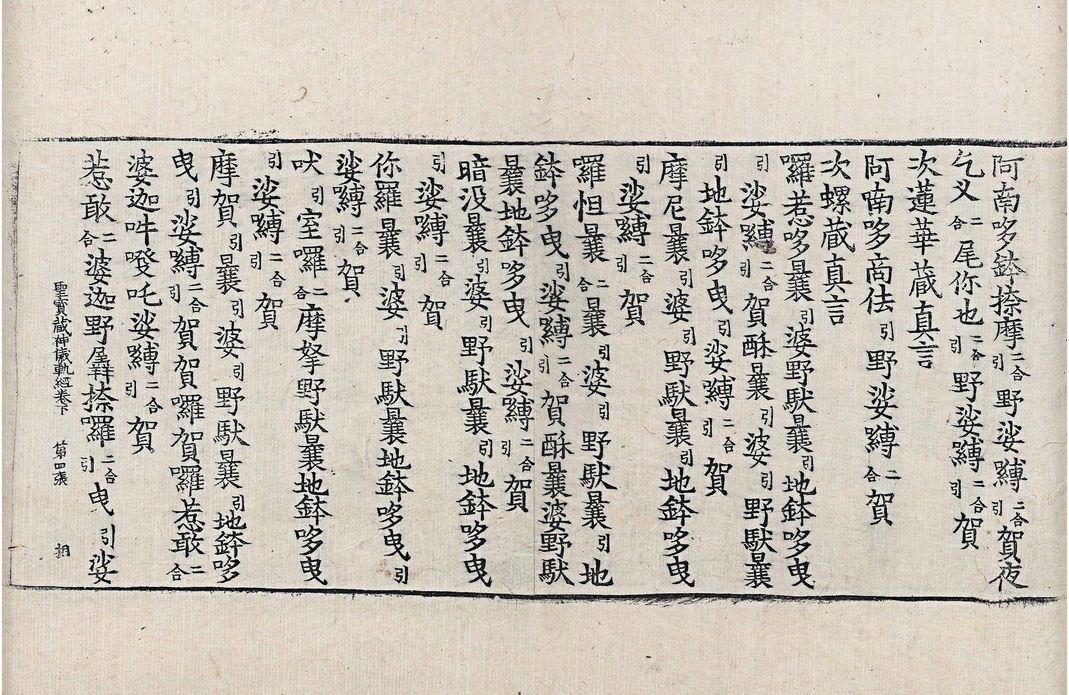 阿喃哆鉢捺摩二合野娑縛二合引賀夜
乞叉二合尾你也二合引野娑縛二合引賀
次蓮華藏真言
阿喃哆商佉引野娑縛二合賀
次螺藏真言
囉惹哆曩引婆野馱曩引地鉢哆曳
引娑縛二合引賀酥曩引婆引野馱曩
引地鉢哆曳引娑縛二合引賀
摩尼曩引婆引野馱曩引地鉢哆曳
引娑縛二合引賀
囉怛曩二合曩引婆引野馱曩引地
鉢哆曳引娑縛二合引賀酥曩婆野馱
曩地鉢哆曳引娑縛二合引賀
暗没曩引婆引野馱曩引地鉢哆曳
引娑縛二合引賀
你羅曩引婆引野馱曩地鉢哆曳引
娑縛二合引賀
吠引室囉二合摩拏野馱曩地鉢哆曳
引娑縛二合引賀
摩賀引曩引婆引野馱曩引地鉢哆
曳引娑縛二合引賀賀囉賀囉惹敢二合
婆迦吽癹吒娑縛二合引賀
惹敢二合婆迦野捺囉二合引曳引娑
聖寶藏神儀軌經卷下 第四張 相